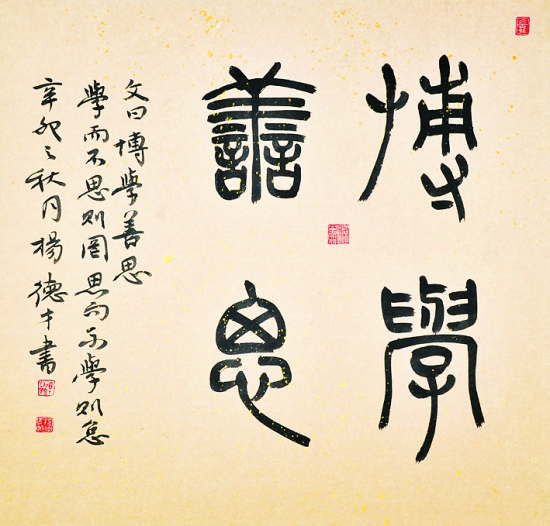 博學
善思
文曰博學善思
學而不思則罔思而不學則怠
辛卯之秋月楊德才書